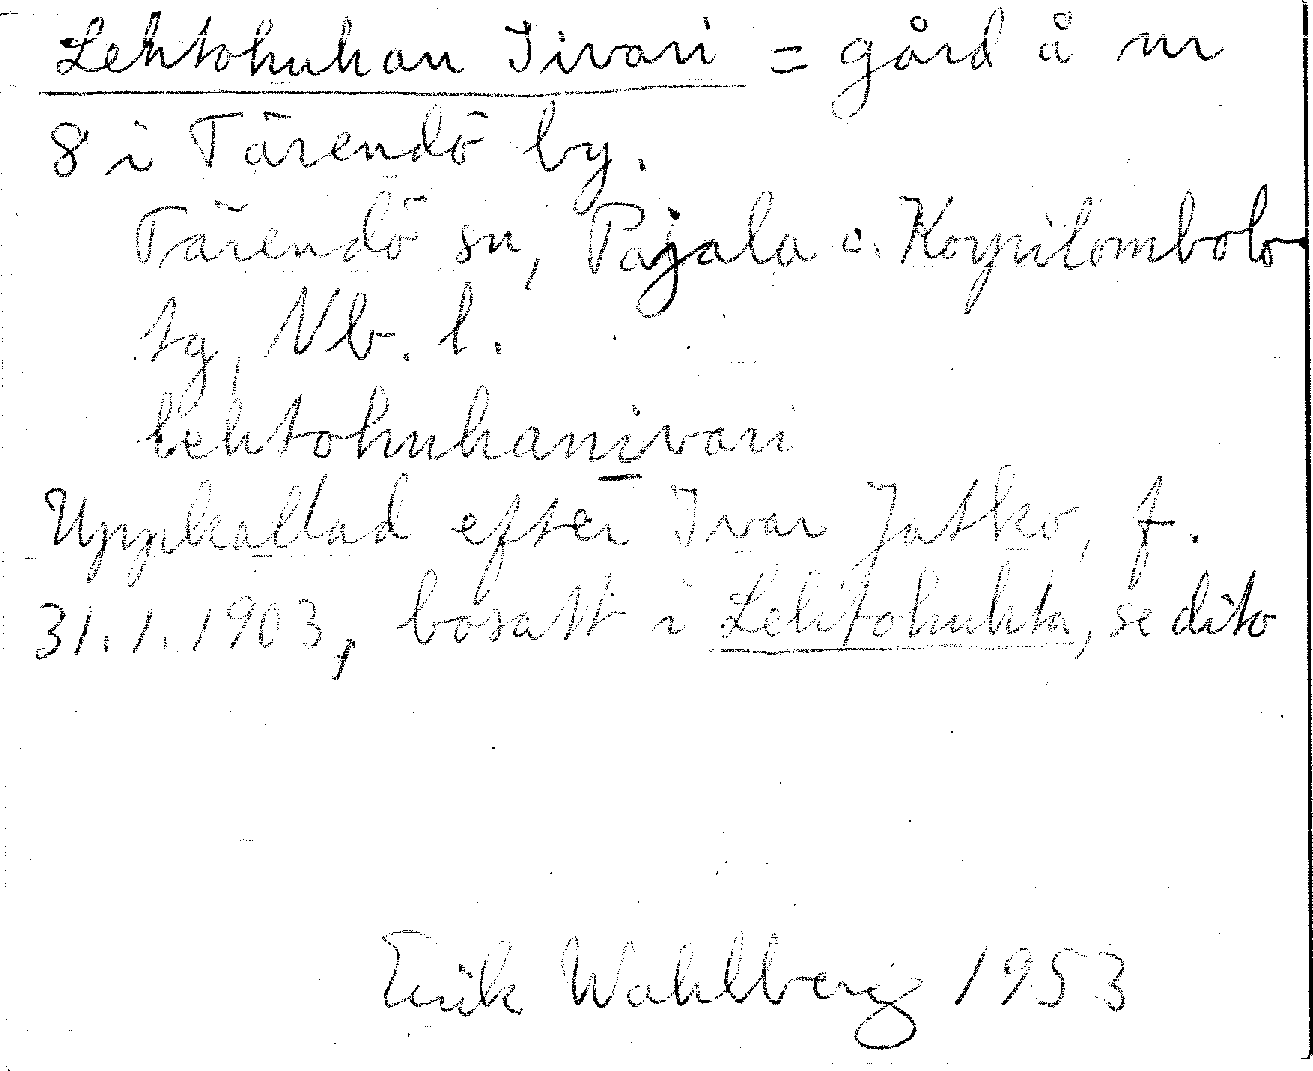 Lehtohuhan Iivari = gård å nr
8 i Tärendö by.
Tärendö sn, Pajala o. Korpilombolo
tg, Nb. l.
lehtohuhanivari
Uppkallad efter Ivar Jatko, f.
31.1.1903, bosatt i Lehtohuhta, se dito
Erik Wahlberg 1953